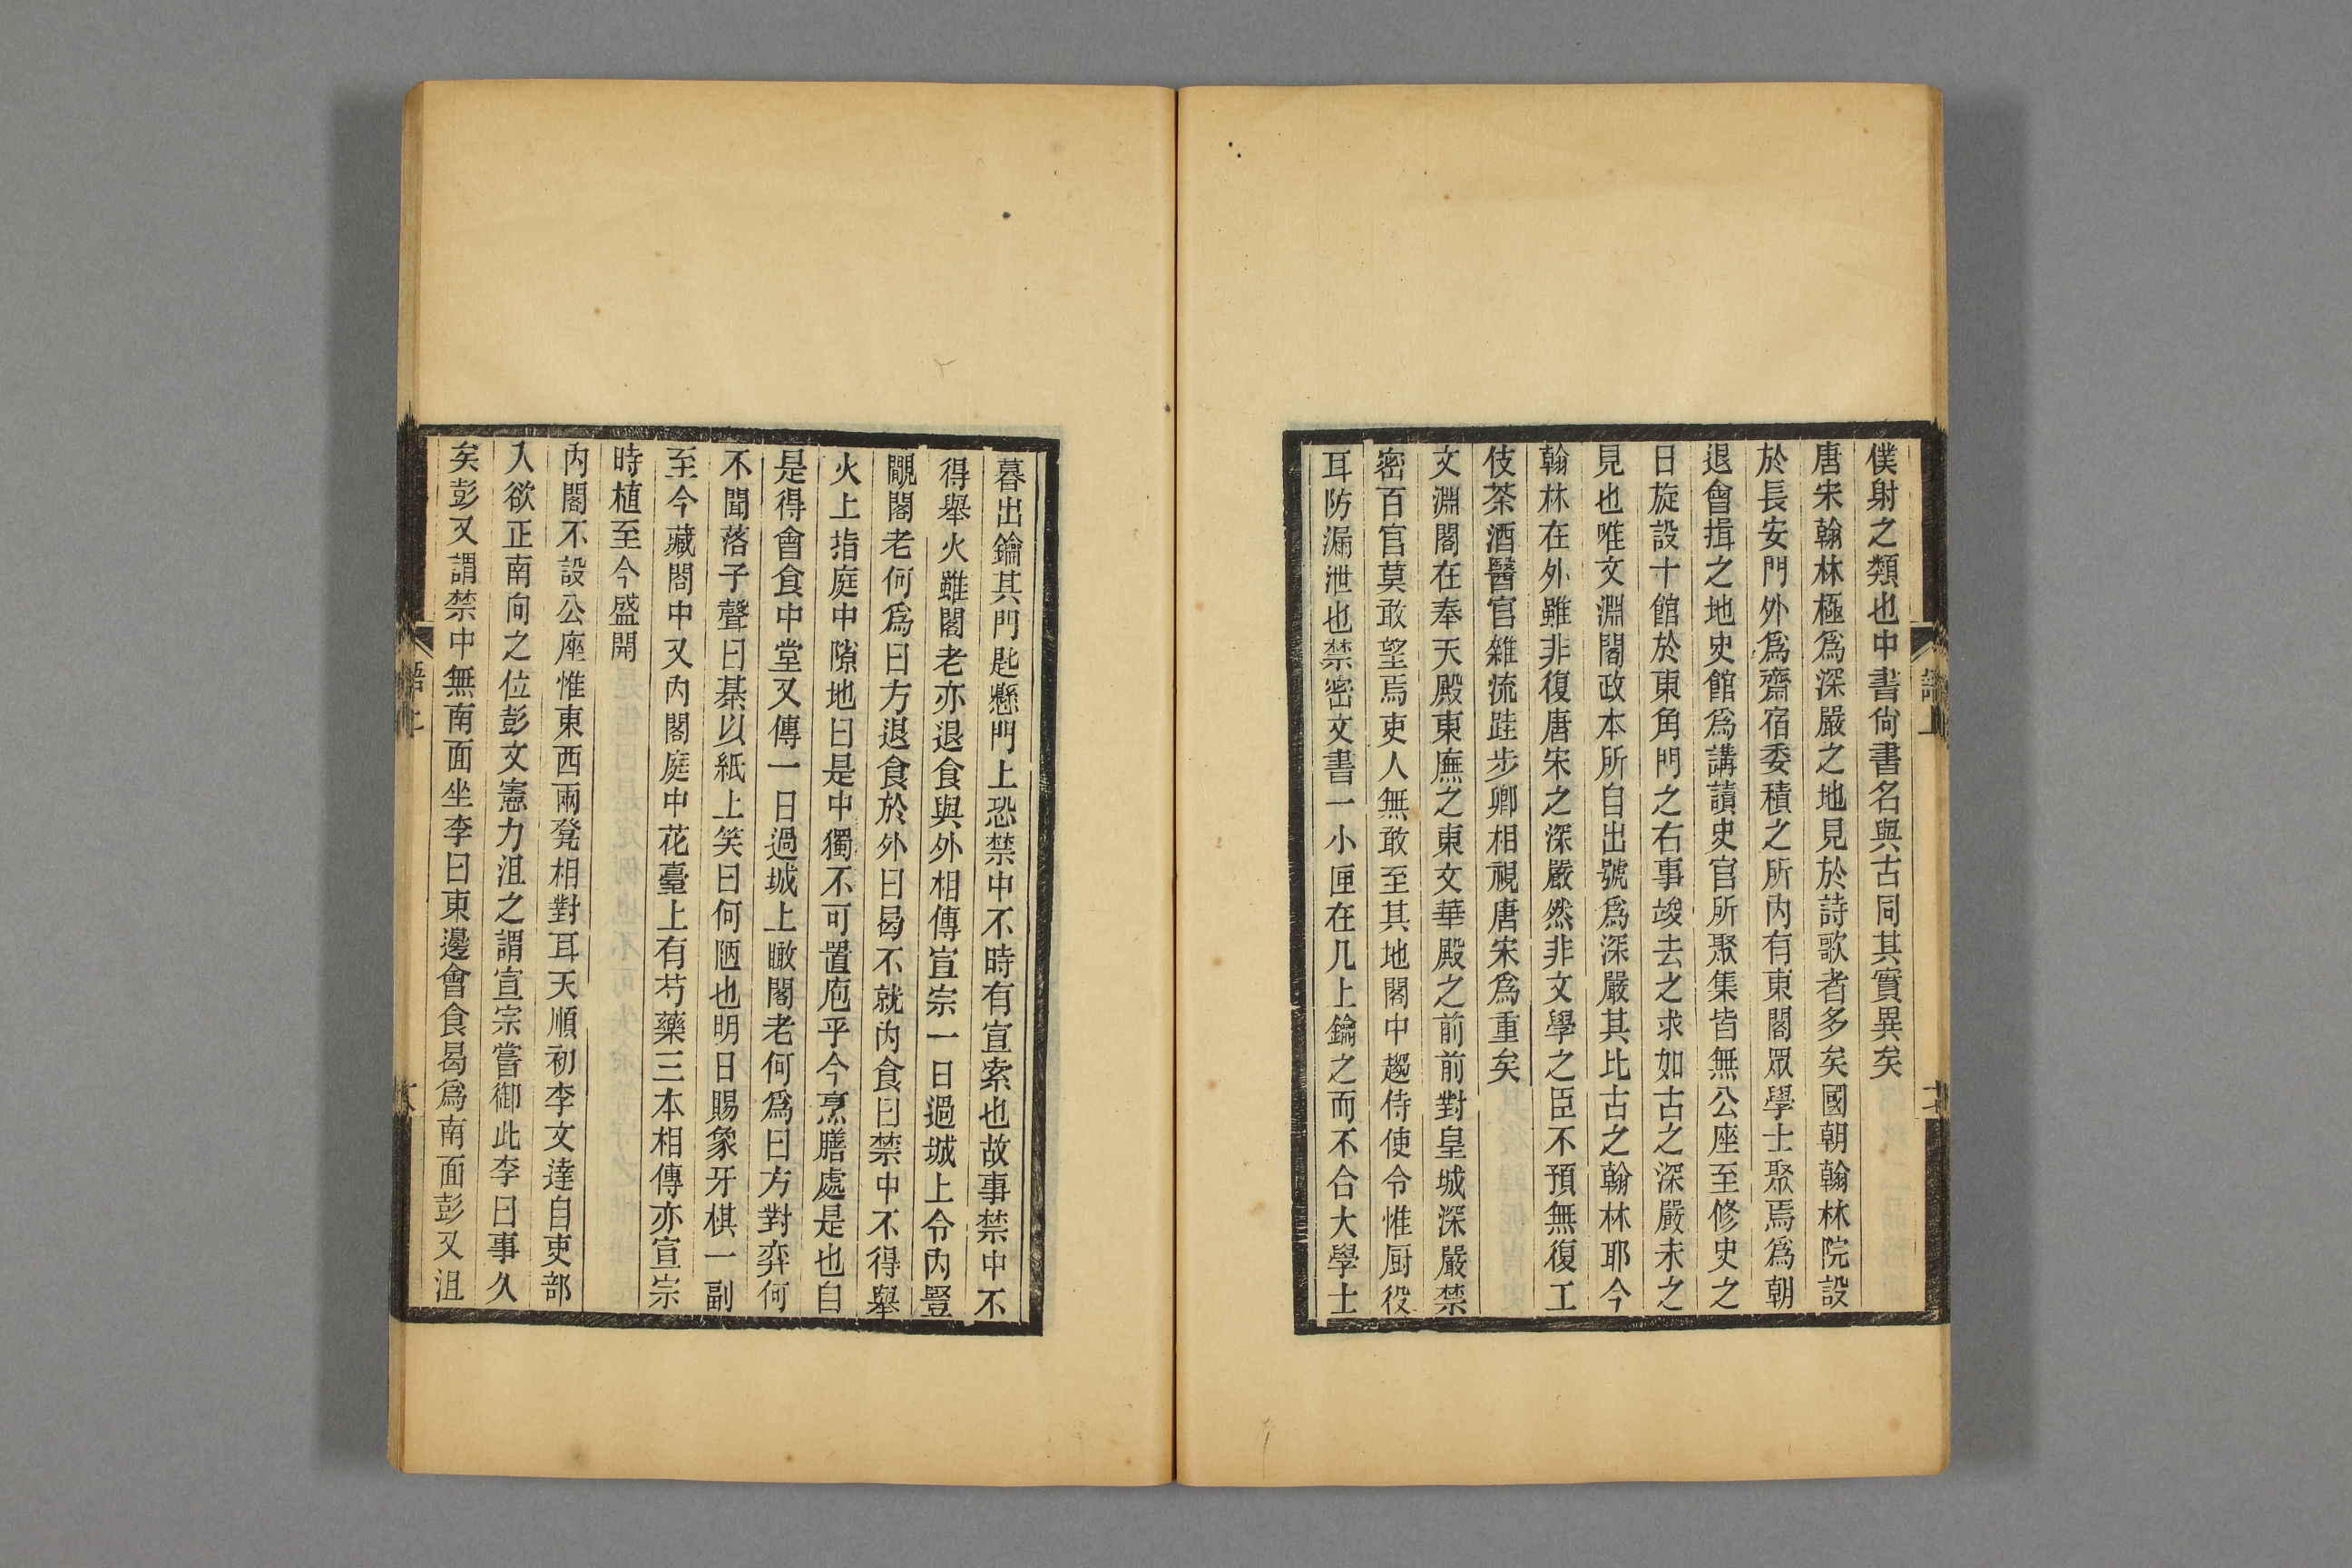 僕射之類也中書尙書名與古同其實異矣
唐宋翰林極爲深嚴之地見於詩歌者多矣國朝翰林院設
於長安門外爲齋宿委積之所內有東閣眾學士聚焉爲朝
退會揖之地史館爲講讀史官所聚集皆無公座至修史之
日旋設十館於東角門之右事竣去之求如古之深嚴未之
見也唯文淵閣政本所自出號爲深嚴其比古之翰林耶今
翰林在外雖非復唐宋之深嚴然非文學之臣不預無復工
伎茶酒醫官雜流跬步卿相視唐宋爲重矣
文淵閣在奉天殿東廡之東文華殿之前前對皇城深嚴禁
密百官莫敢望焉吏人無敢至其地閣中趨侍使令惟厨役
耳防漏泄也禁密文書一小匣在几上鑰之而不合大學士
暮出鑰其門匙懸門上恐禁中不時有宣索也故事禁中不
得舉火雖閣老亦退食與外相傳宣宗一日過城上令內豎
覸閣老何爲曰方退食於外曰曷不就內食曰禁中不得舉
火上指庭中隙地曰是中獨不可置庖乎今烹膳處是也自
是得會食中堂又傳一日過城上瞰閣老何爲曰方對弈何
不聞落子聲曰棊以紙上笑曰何陋也明日賜象牙棋一副
至今藏閣中又內閣庭中花臺上有芍藥三本相傳亦宣宗
時植至今盛開
內閣不設公座惟東西兩凳相對耳天順初李文達自吏部
入欲正南向之位彭文憲力沮之謂宣宗嘗御此李曰事久
矣彭又謂禁中無南面坐李曰東邊會食曷爲南面彭又沮
語上